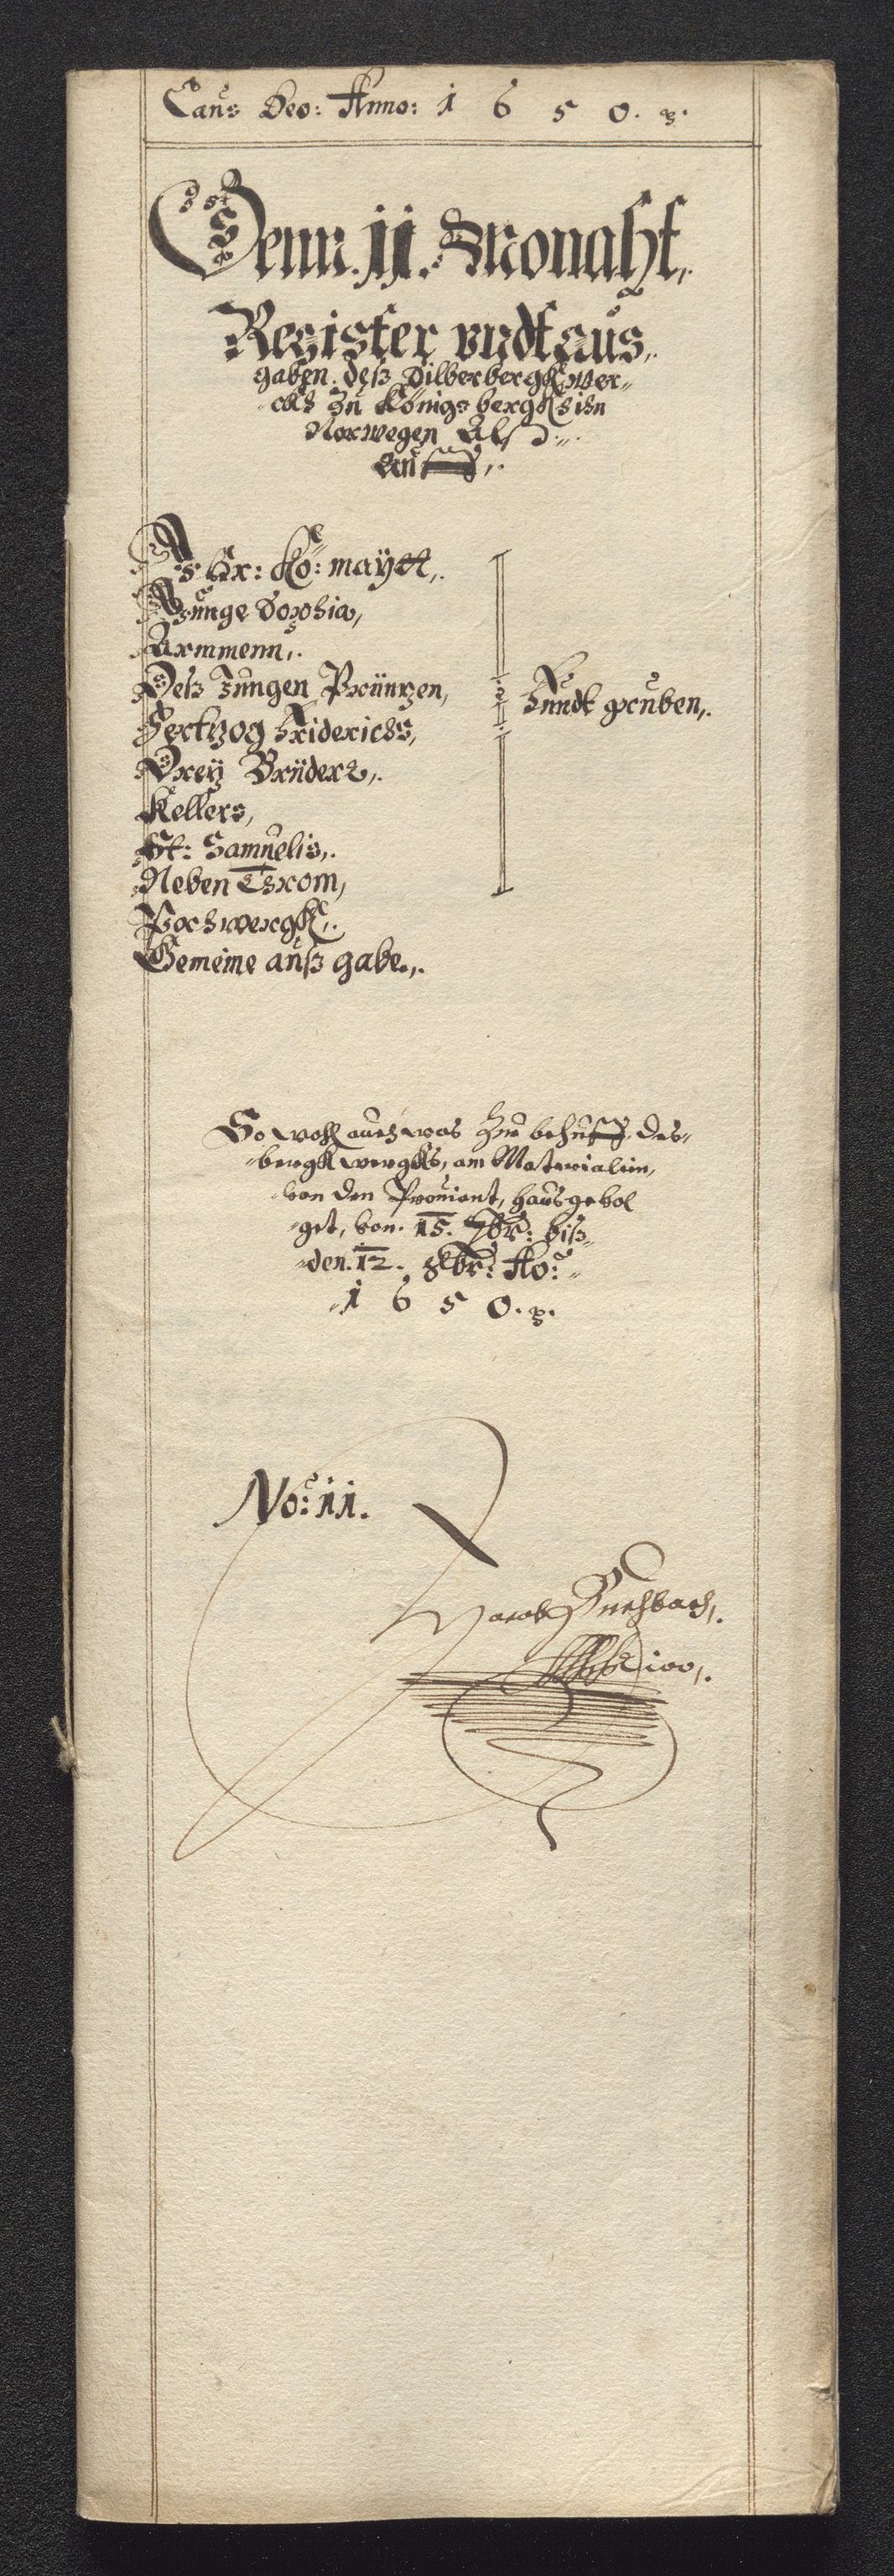 Laus Deo: Anno: 1 6 5 0. p.
Denn. 11. Monaht,.
Register vndt aus,.
gaben. deß Silberbergkwer„
„cks zu Königsbergks ihn
Norwegen Als D„.
auff,.
Ihr: Kö: mayett,.
Junge Sophia,
Armmenn,.
Deß Jungen Prüntzen,
Hertzog Friderichs,
Drey Brüders,.
Kellers,
St: Samuelis,.
Neben Throm,
Pochwergk,.
Gemeine außgabe.,.
Fundt gruben,.
So wohl auch was zue behuff. des„
„bergkwergks, am Materialien,
„von den Prouiant, haus gevol
„get, von. 15. 7br: biß„
„den. 12. 8br: Ao:„
„1 6 5 0. p.
No: 11.
Jacob